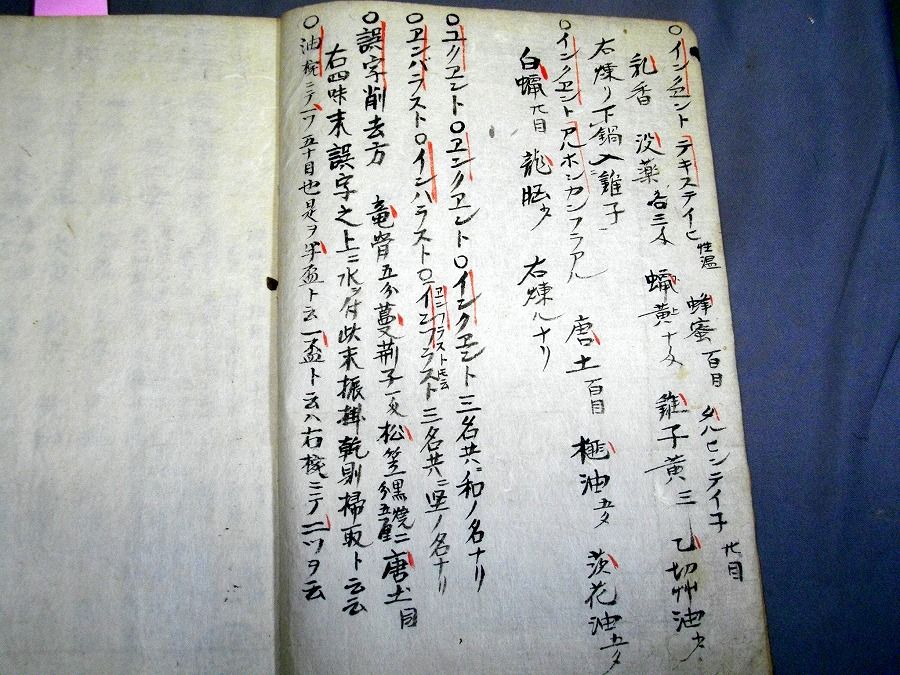 ○インクエント テキステイヒ 性温 蜂蜜 百目 タルヒンテイナ 廿目
乳香 没薬 各三匁 蝋黄 十匁 雞子黄 三 乙切艸油 少
右煉リ下鍋入雞子
○インクエント アルホシカンフラアル 唐土 百目 榧油 五匁 茨花油 五匁
白蝋 廿目 龍脳 少 右煉ルナリ
○ユクエント ○エンクエント ○インクエント 三名共ニ和ノ名ナリ
○エンバラスト ○インハラスト ○インフラスト エンフラスト 三名共ニ堅ノ名ナリ
○誤字削去方 竜骨 五分 蔓荊子 一匁 松笠黒焼 二分五厘 唐土 目
右四味末誤字之上ニ水ヲ付此末振掛乾則掃取ト云云
○油椀ニテ一ツ五十目也是ヲ半盃ト云一盃ト云ハ右椀ニテ二ツヲ云